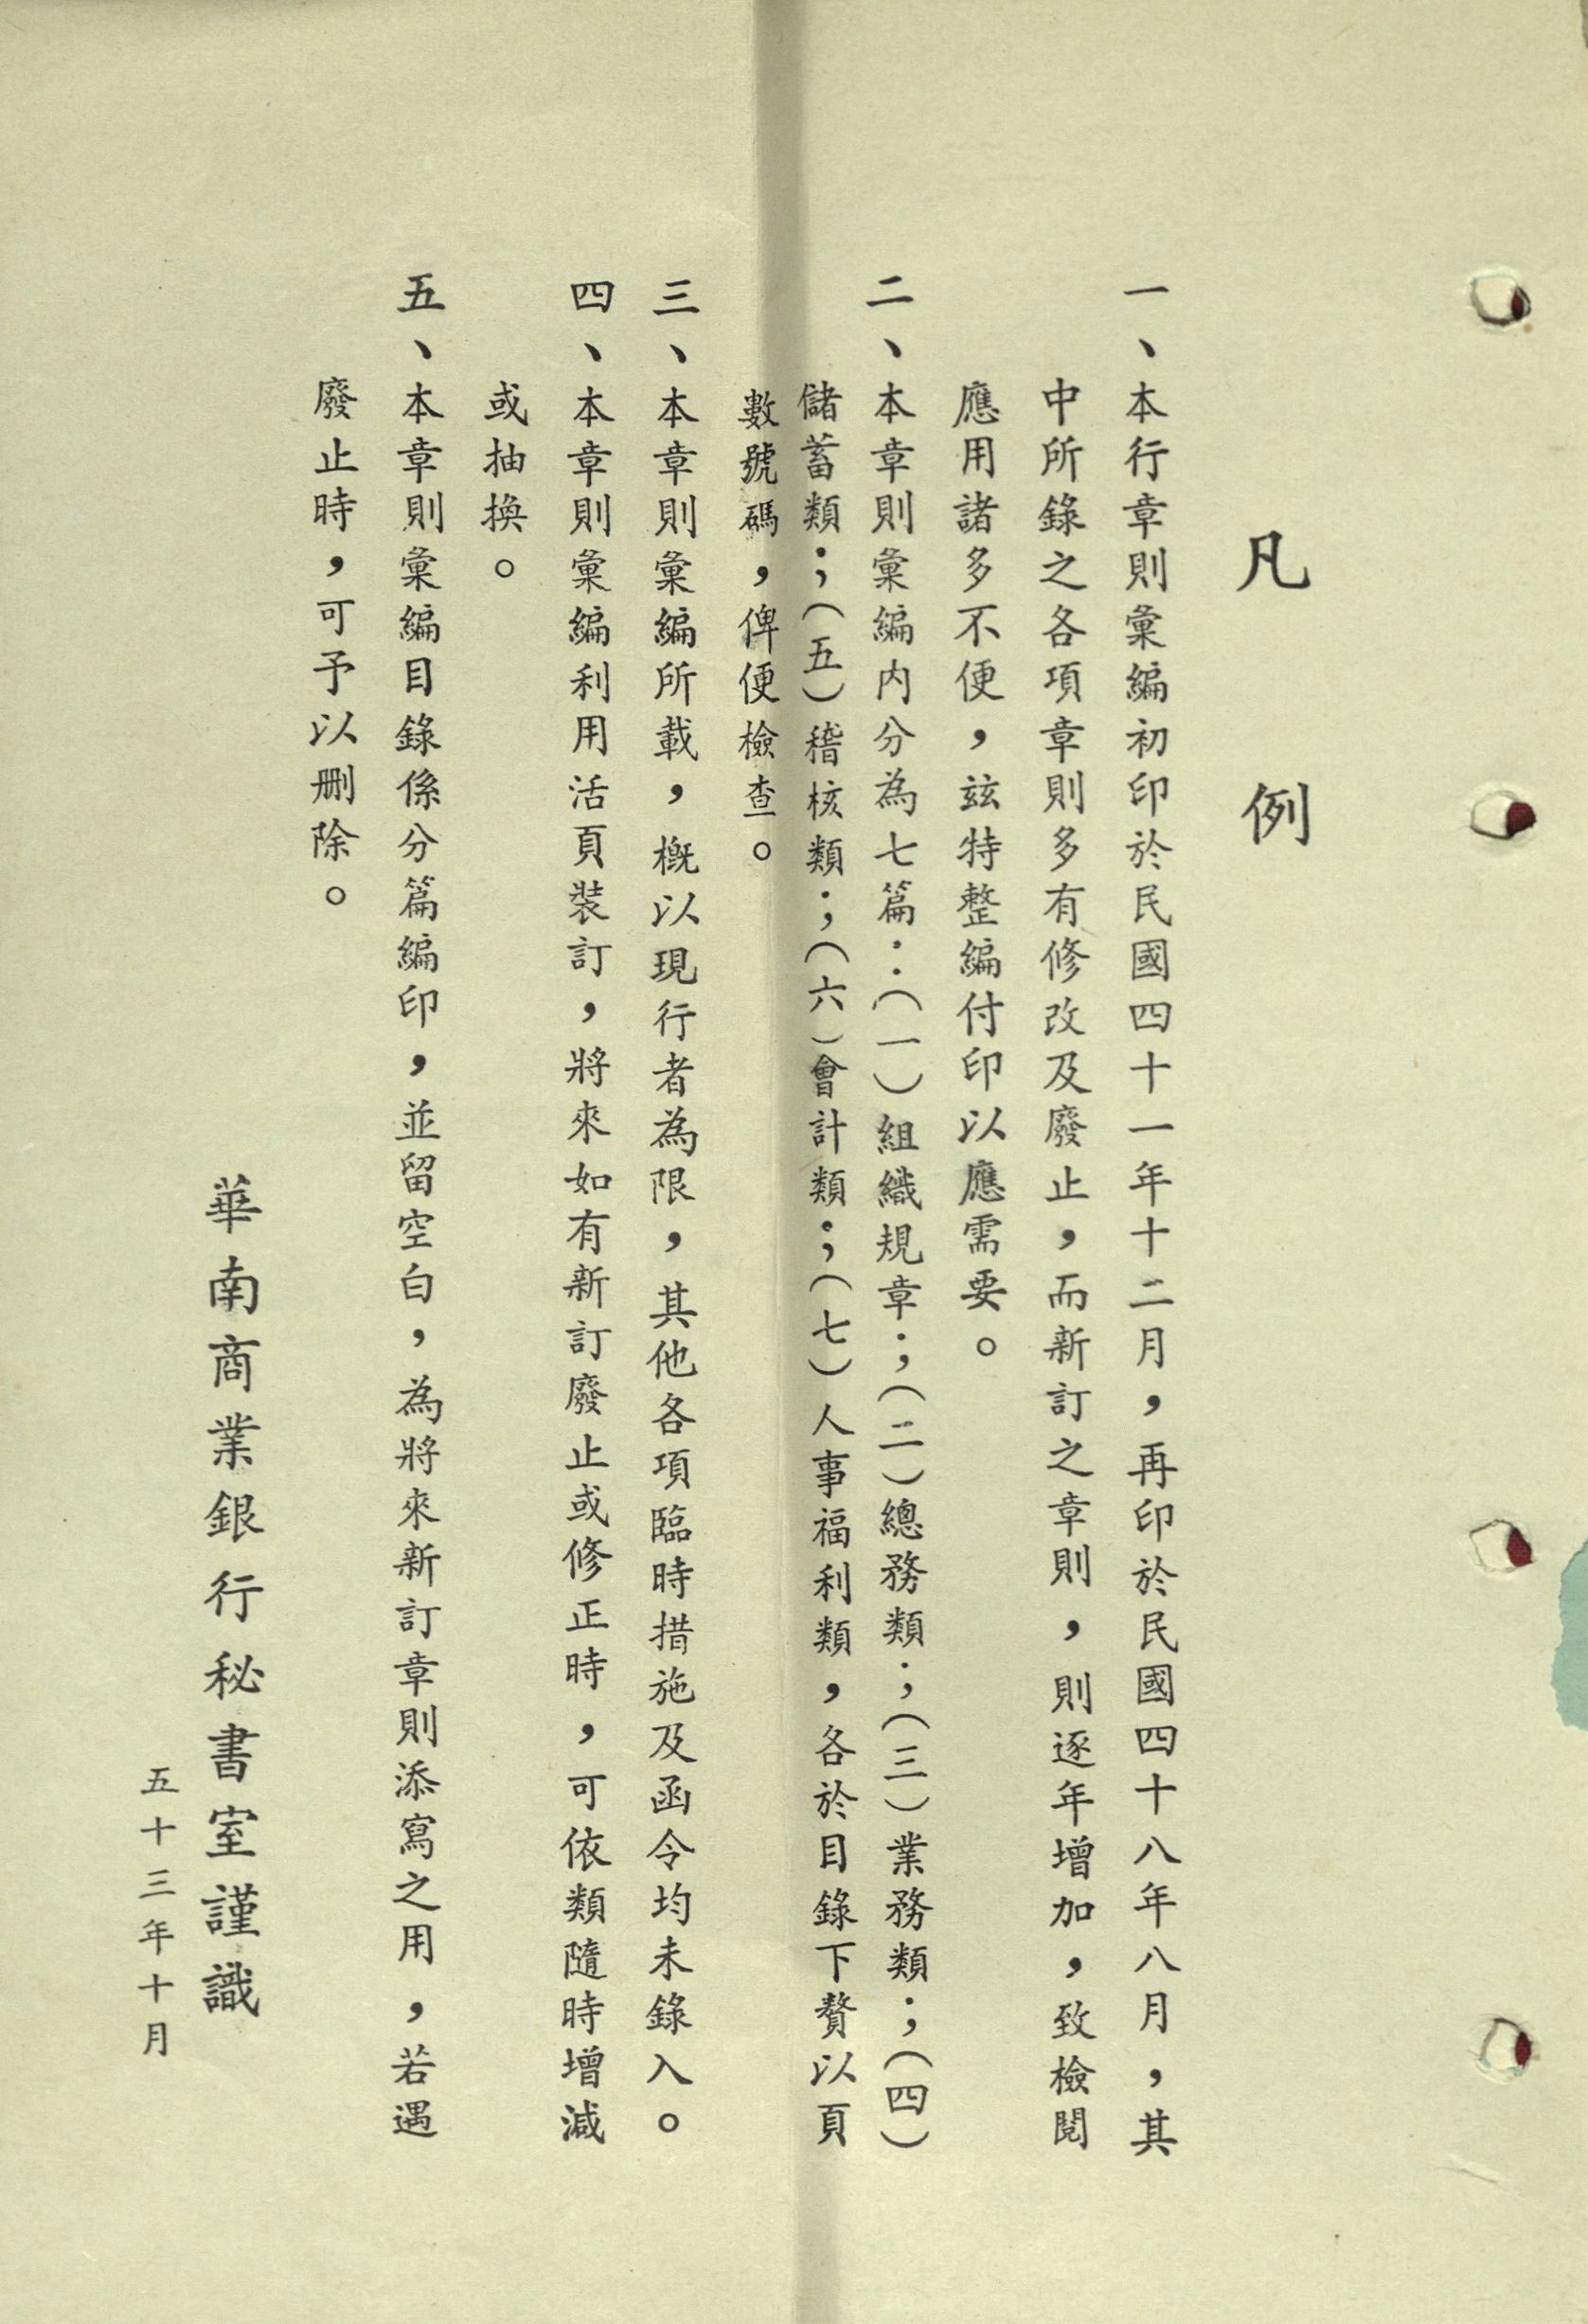 凡例
一、本行章則彙編初印於民國四十一年十二月，再印於民國四十八年八月，其
中所錄之各項章則多有修改及廢止，而新訂之章則，則逐年增加，致檢閱
應用諸多不便，玆特整編付印以應需要。
二、本章則彙編内分為七篇：（一）組織規章；（二）總務類；（三）業務類；（四）
儲蓄類；（五）稽核類；（六）會計類；（七）人事福利類，各於目錄下贅以頁
數號碼，俾便檢查。
三、本章則彙編所載，概以現行者為限，其他各項臨時措施及函令均未錄入。
四、本章則彙編利用活頁裝訂，將來如有新訂廢止或修正時，可依類隨時增減
或抽換。
五、本章則彙編目錄係分篇編印，並留空白，為將來新訂章則添寫之用，若遇
廢止時，可予以刪除。
華南商業銀行秘書室謹識
五十三年十月